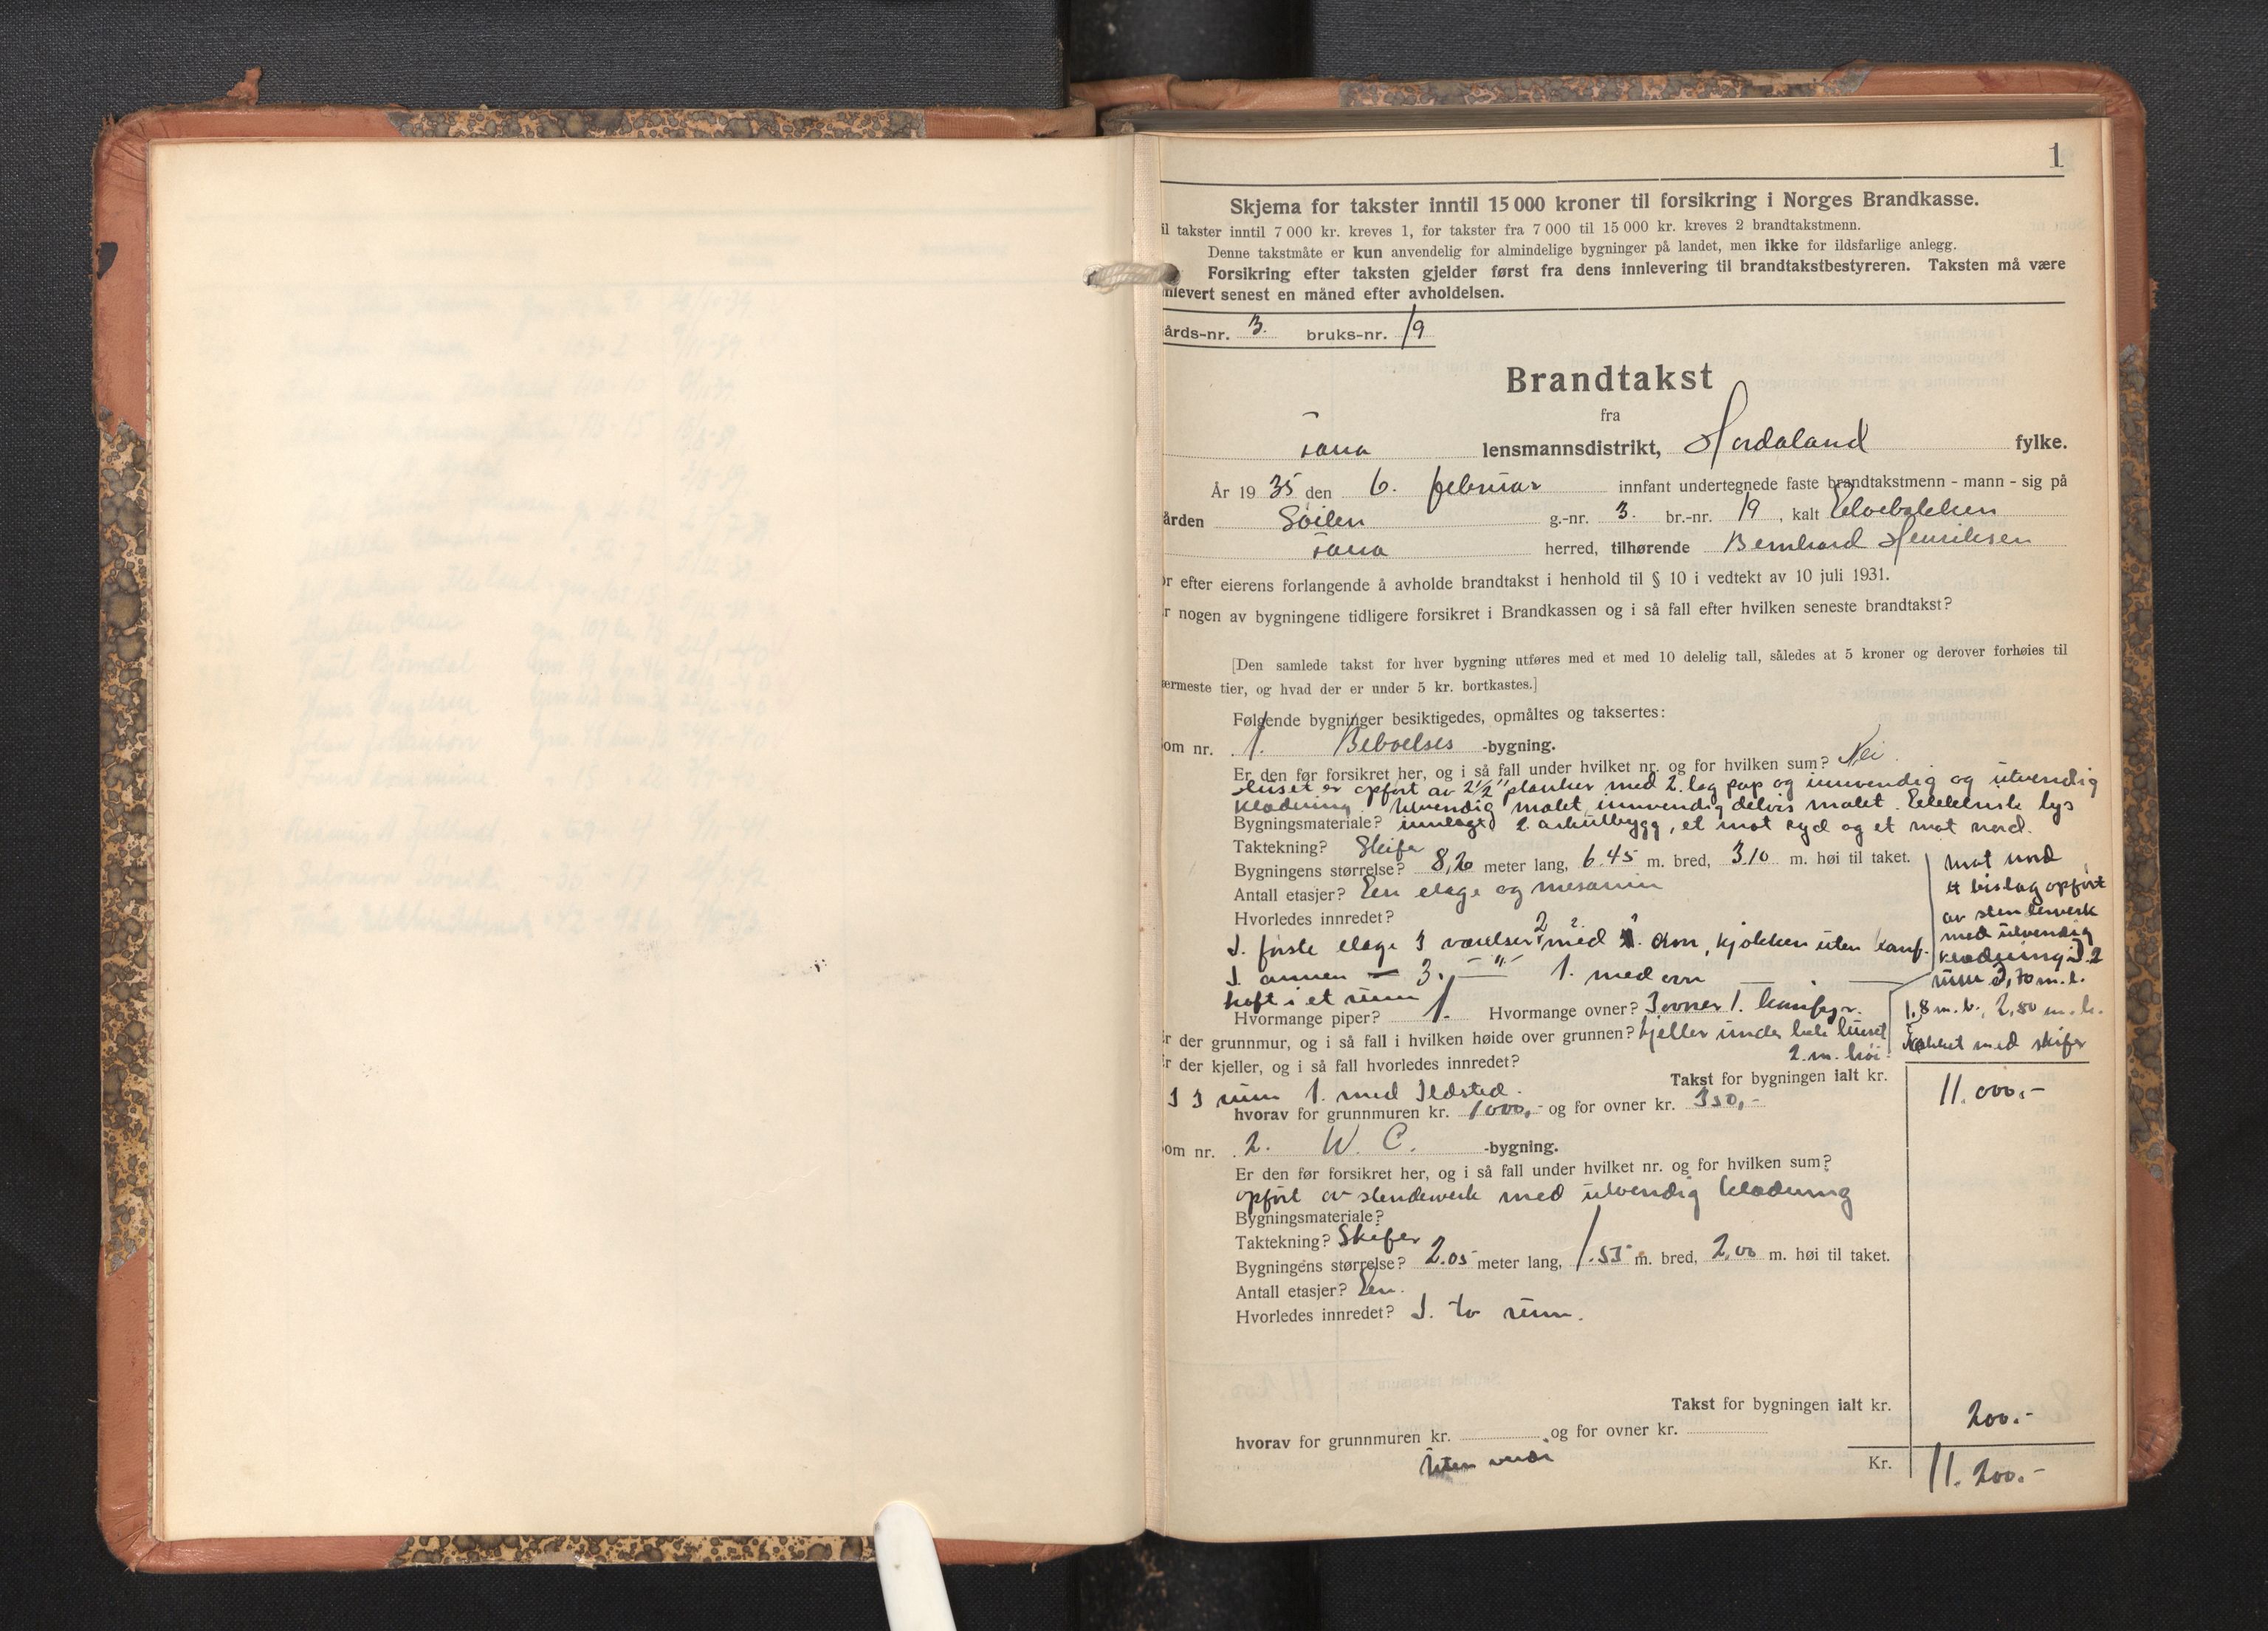 1
Skjema for takster inntil 15 000 kroner til forsikring i Norges Brandkasse.
il takster inntil 7 000 kr. kreves 1, for takster fra 7 000 til 15 000 kr. kreves 2 brandtakstmenn.
Denne takstmåte er kun anvendelig for almindelige bygninger på landet, men ikke for ildsfarlige anlegg.
Forsikring efter taksten gjelder først fra dens innlevering til brandtakstbestyreren. Taksten må være
nlevert senest en måned efter avholdelsen.
årds-nr. 3. bruks-nr. 19
Brandtakst
fra
Fana lensmannsdistrikt, Hordaland fylke.
År 1935 den 6. februar innfant undertegnede faste brandtakstmenn - mann - sig på
ården Søilen g.-nr. 3. br.-nr. 19, kalt Elvebakken
Fana herred, tilhørende Bernhard Henriksen
or efter eierens forlangende å avholde brandtakst i henhold til § 10 i vedtekt av 10 juli 1931.
r nogen av bygningene tidligere forsikret i Brandkassen og i så fall efter hvilken seneste brandtakst?
[Den samlede takst for hver bygning utføres med et med 10 delelig tall, således at 5 kroner og derover forhøies til
ærmeste tier, og hvad der er under 5 kr. bortkastes.]
Følgende bygninger besiktigedes, opmåltes og taksertes:
om nr. 1. Beboelses -bygning.
Er den før forsikret her, og i så fall under hvilket nr. og for hvilken sum? Nei.
Huset er opført av 2½" planker med 2. lag pap og innvendig og utvendig
klædning. Utvendig malet, innvendig delvis malet. Elektrisk lys
Bygningsmateriale? innlagt 2. arkutbygg, et mot syd og et mot nord.
Taktekning? Skifer
Bygningens størrelse? 8,20 meter lang, 6.45 m. bred, 3.10 m. høi til taket.
Antall etasjer? Een etage og mesanin
Hvorledes innredet?
I. første etage 3 værelser 2 med ovn, kjøkken uten kamf.
I annen — 3. —"— 1. med ovn
loft i et rum
mot nord
et bislag opført
av stenderverk
med utvendig
klædning I 2
rum 3,70 m. l.
1,8 m. b., 2,80 m. h.
tekket med skifer
Hvormange piper? 1. Hvormange ovner? 3 ovner 1. komfyr.
r der grunnmur, og i så fall i hvilken høide over grunnen? Kjeller under hele huset
2. m. høi.
r der kjeller, og i så fall hvorledes innredet?
I 3 rum 1. med Ildsted.
Takst for bygningen ialt kr. 11.000.-
hvorav for grunnmuren kr. 1000,- og for ovner kr. 350,-
om nr. 2. W. C. -bygning.
Er den før forsikret her, og i så fall under hvilket nr. og for hvilken sum?
opført av stenderverk med utvendig klædning
Bygningsmateriale?
Taktekning? Skifer
Bygningens størrelse? 2.05 meter lang, 1.55 m. bred, 2,00 m. høi til taket.
Antall etasjer? Een.
Hvorledes innredet? I. to rum.
Takst for bygningen ialt kr. 200.-
hvorav for grunnmuren kr. og for ovner kr.
Uten verdi
Kr. 11.200.-